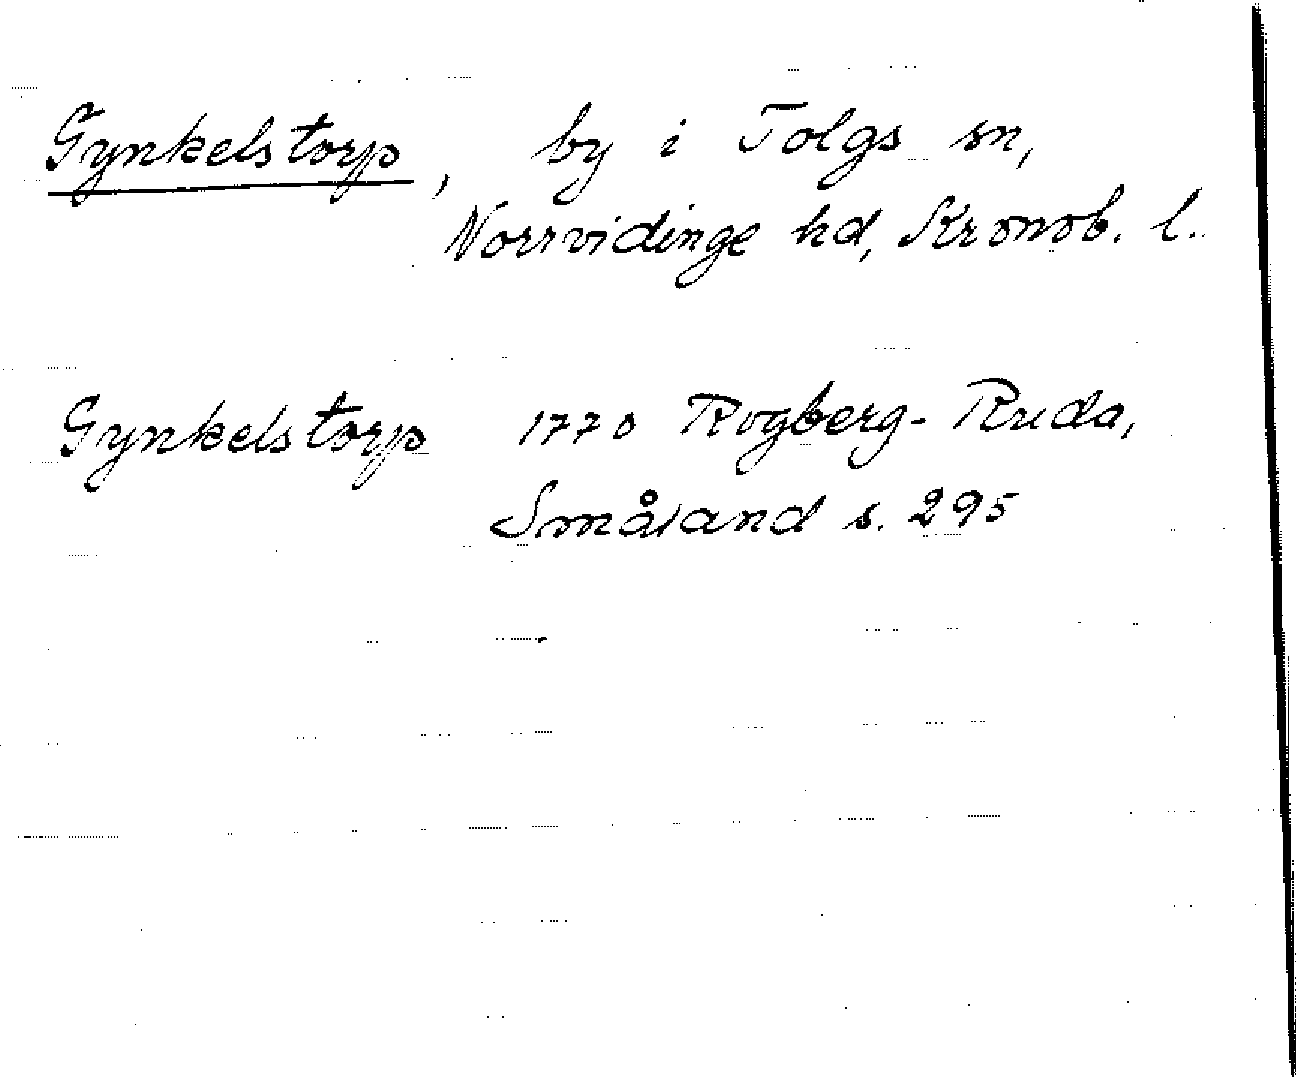 Gynkelstorp, by i Tolgs sn,
Norrvidinge hd, Kronob. l.
Gynkelstorp 1770 Rogberg-Ruda,
Småland s. 295